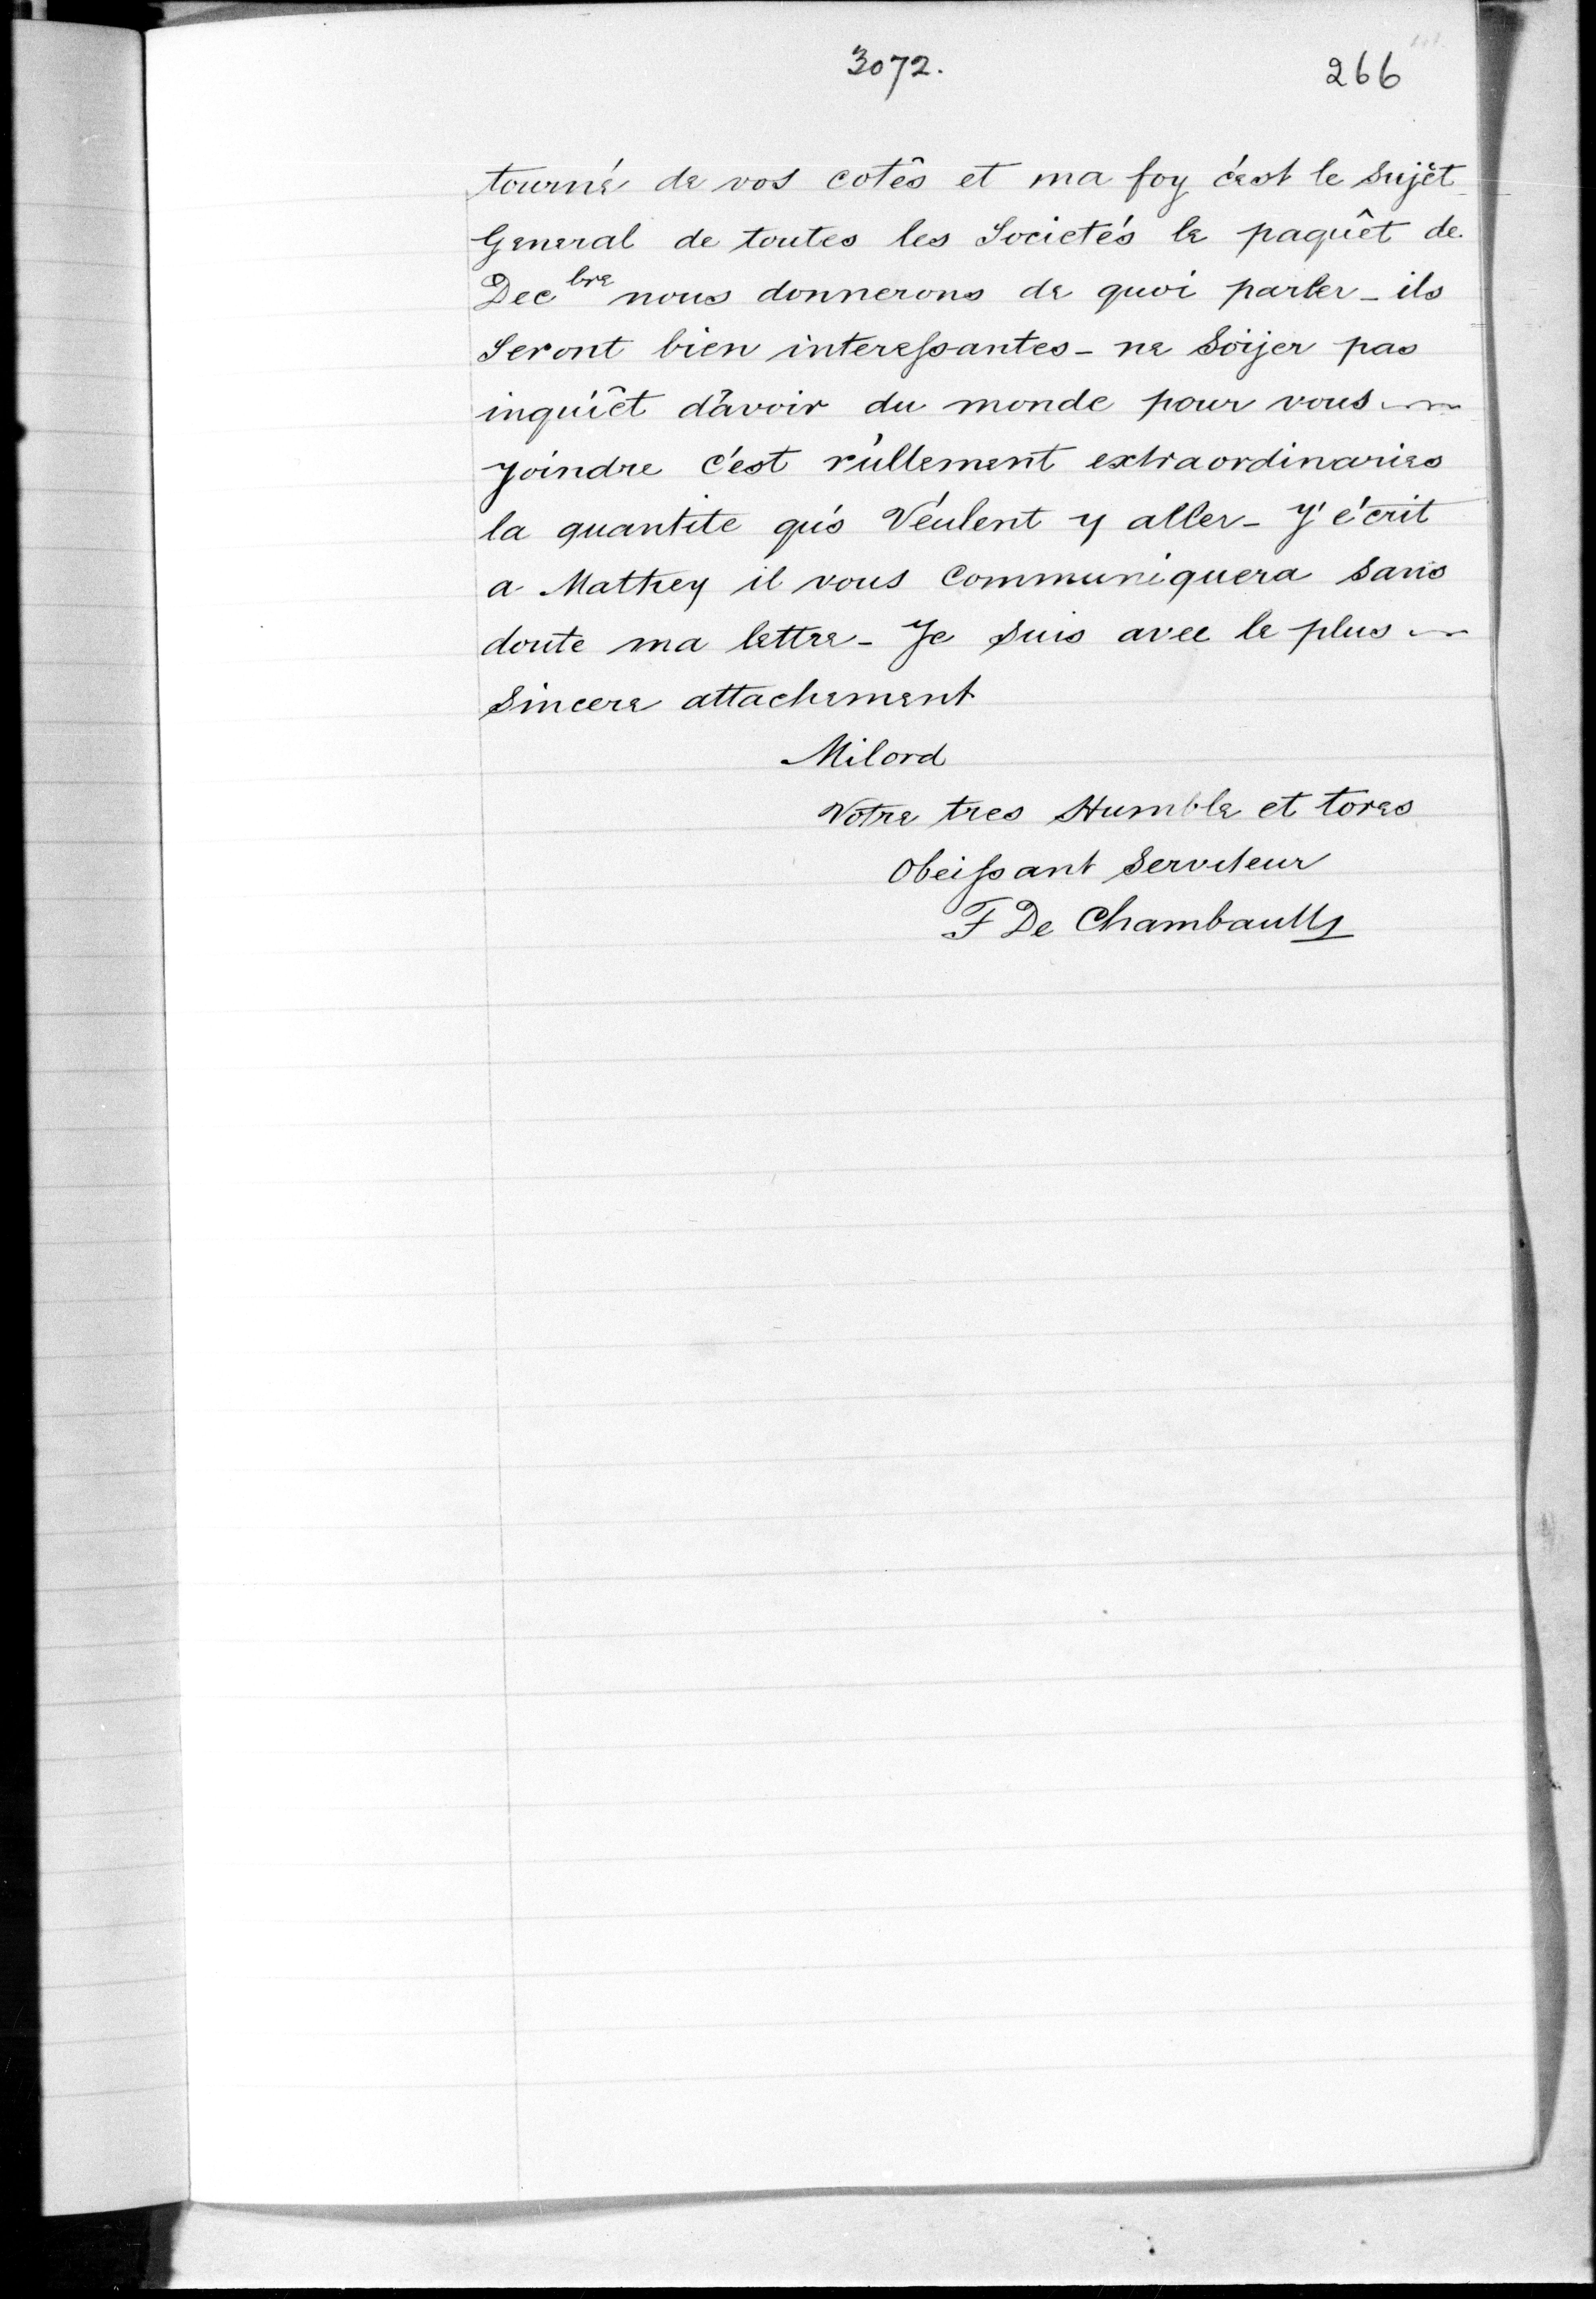 3072.
266
tourné de vos cotês et ma foy c'est le Sujêt
General de toutes les Societés le paquêt de
Dec bre nous donnerons de quoi parler - ils
Seront bien interessantes - ne Soijer pas
inquiêt d'avoir du monde pour vous
Joindre c'est rullement extraordinaries
la quantite qu's Véulent y aller - Y' écrit
a Mathey il vous Communiquera Sans
doute ma lettre - Je Suis avec le plus
Sincere attachement
Milord
Votre tres Humble et tores
Obeissant Serviteur
F De Chambault